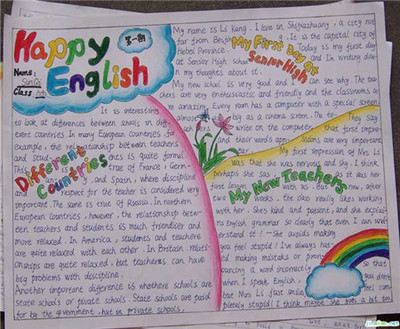 Happy
English
第一期
Name:
Class
My name is Li Kang. I live in Shijiazhuang, a city not
far from Beijing. It is the capital city of
Hebei Province. Today is my first day
at Senior High school and I'm writing down
my thoughts about it.
My First Day at
Senior High
My new school is very good and I can see why. The teachers
are very enthusiastic and friendly and the classrooms are
amazing. Every room has a computer with a special screen,
almost as big as a cinema screen. The
write on the computer, and
They say
that first impressions
are very important
My first impression of Mrs. Li
was that she was nervous and shy. I think
perhaps she was, as it was her
first lesson with us. But now, after
two weeks, the class really likes working
with her. She's kind and patient, and she explains
English grammar so clearly that even I can
understand it! — She avoids making
you feel stupid! I've always hated
making mistakes or pronouncing
a word incorrectly
when I speak English,
but Mrs Li just smiles so that
you don't feel
completely stupid! I think maybe she goes a bit too
My New Teachers
Different
Countries
It is interesting
to look at differences between schools in different
countries. In many European countries, for
example, the relationship between teachers
and students is quite formal.
This is true of France, Germany
and Spain, where discipline
and respect for the teacher is considered very
important. The same is true of Russia. In northern
European Countries, however, the relationship between
teachers and students is much friendlier and
more relaxed. In America, students and teachers
are quite relaxed with each other. In Britain, relationships
are quite relaxed, but teachers can have
big problems with discipline.
Another important difference is whether schools are
state schools or private schools. State schools are paid
for by the government, but in private schools,